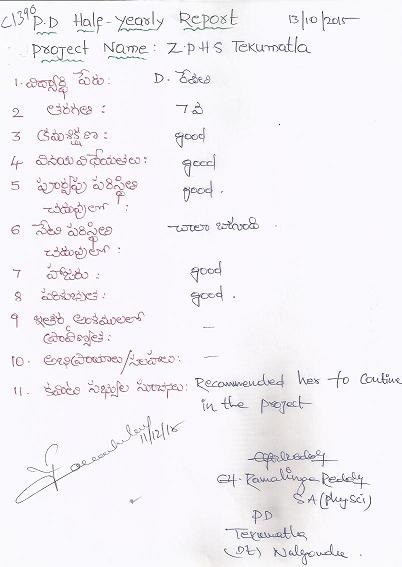 C1396 P.D Half-Yearly Report 13/10/2015
Project Name: Z.P.H.S Tekumatla
1. విద్యార్థి పేరు: D. రేణుక
2 తరగతి : 7 వ
3 క్రమశిక్షణ : good
4 వినయ విధేయతలు: good
5 పూర్వపు పరిస్థితి good.
చదువులో :
6 నేటి పరిస్థితి చాలా బాగుంది
చదువులో :
7 హాజరు : good
8 పరిశుభ్రత : good.
9 ఇతర అంశములలో
ప్రావీణ్యత: —
10. అభిప్రాయాలు/సలహాలు: —
11. కమిటి సభ్యుల సూచనలు: Recommended her to Coutine
in the project
11/12/15
CH. Ramalinga Reddy
SA (phy sci)
PD
Tekumatla
(Dt) Nalgonda.